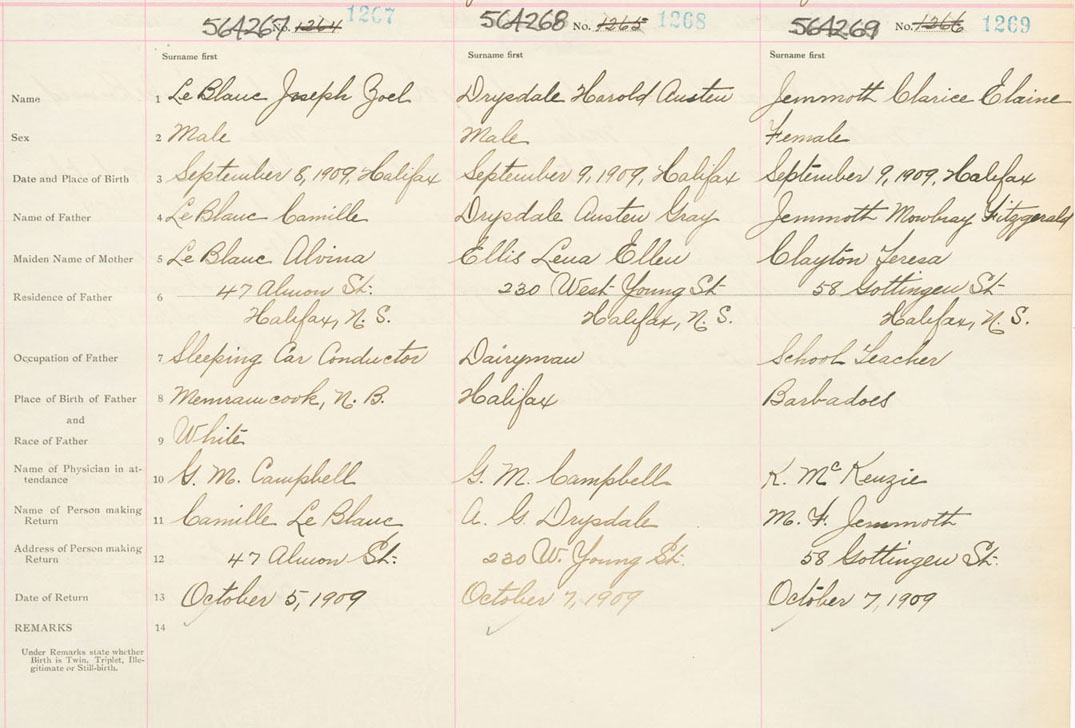 564267 No. 1264 1267 564268 No. 1265 1268 564269 No. 1266 1269
Surname first Surname first Surname first
Name 1 Le Blanc Joseph Zoel Drysdale Harold Austen Jemmoth Clarice Elaine
Sex 2 Male Male Female
Date and Place of Birth 3 September 8, 1909, Halifax September 9, 1909, Halifax September 9, 1909, Halifax
Name of Father 4 Le Blanc Camille Drysdale Austen Gray Jemmoth Mowbray Fitzgerald
Maiden Name of Mother 5 Le Blanc Alvina Ellis Lena Ellen Clayton Teresa
Residence of Father 6 47 Almon St. 230 West Young St 58 Gottingen St
Halifax, N. S. Halifax, N. S. Halifax, N. S.
Occupation of Father 7 Sleeping Car Conductor Dairyman School Teacher
Place of Birth of Father 8 Memramcook, N. B. Halifax Barbadoes
and
Race of Father 9 White
Name of Physician in at-
tendance 10 G. M. Campbell G. M. Campbell K. McKenzie
Name of Person making
Return 11 Camille Le Blanc A. G. Drysdale M. F. Jemmoth
Address of Person making
Return 12 47 Almon St. 230 W. Young St. 58 Gottingen St.
Date of Return 13 October 5, 1909 October 7, 1909 October 7, 1909
REMARKS 14
Under Remarks state whether
Birth is Twin, Triplet, Ille-
gitimate or Still-birth.